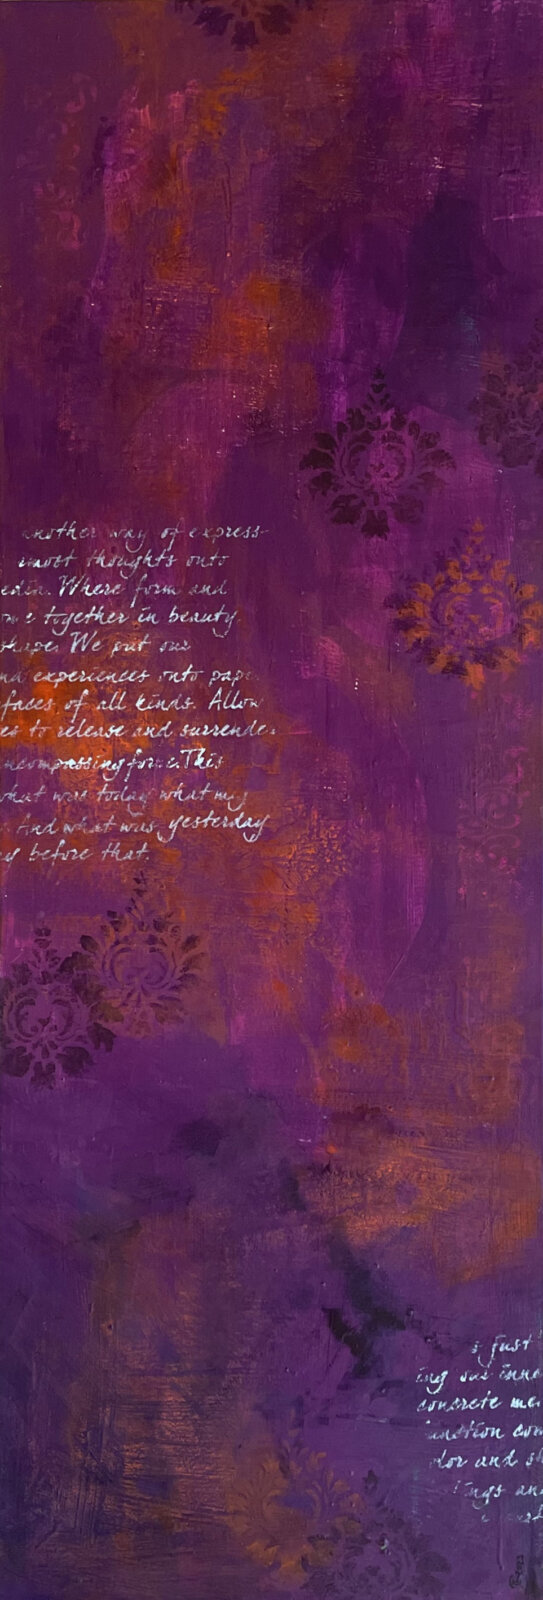 another way of express-
most thoughts onto
edia. Where form and
ome together in beauty
shape. We put our
nd experiences onto pape
faces of all kinds. Allow
es to release and surrender
ncompassing force. This
what was today what my
And what was yesterday
ay before that.
s just
ing our inne
concrete me
function com
olor and sh
ings an
surf
2023